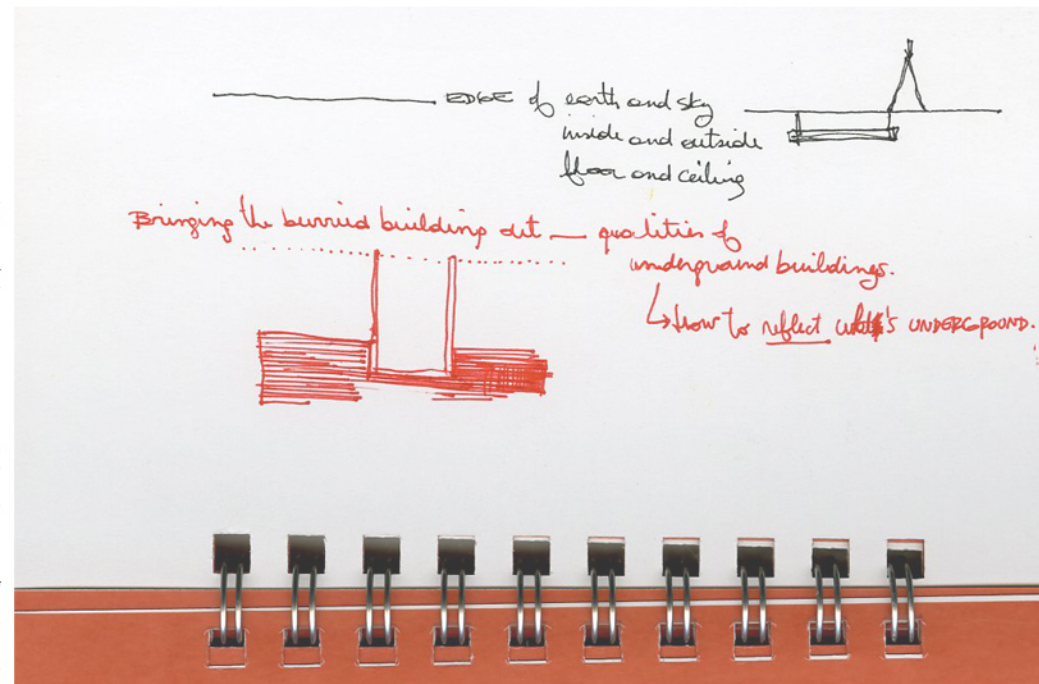 EDGE of earth and sky
inside and outside
floor and ceiling
Bringing the burried building out — qualities of
underground buildings.
↳ how to reflect what's UNDERGROUND.